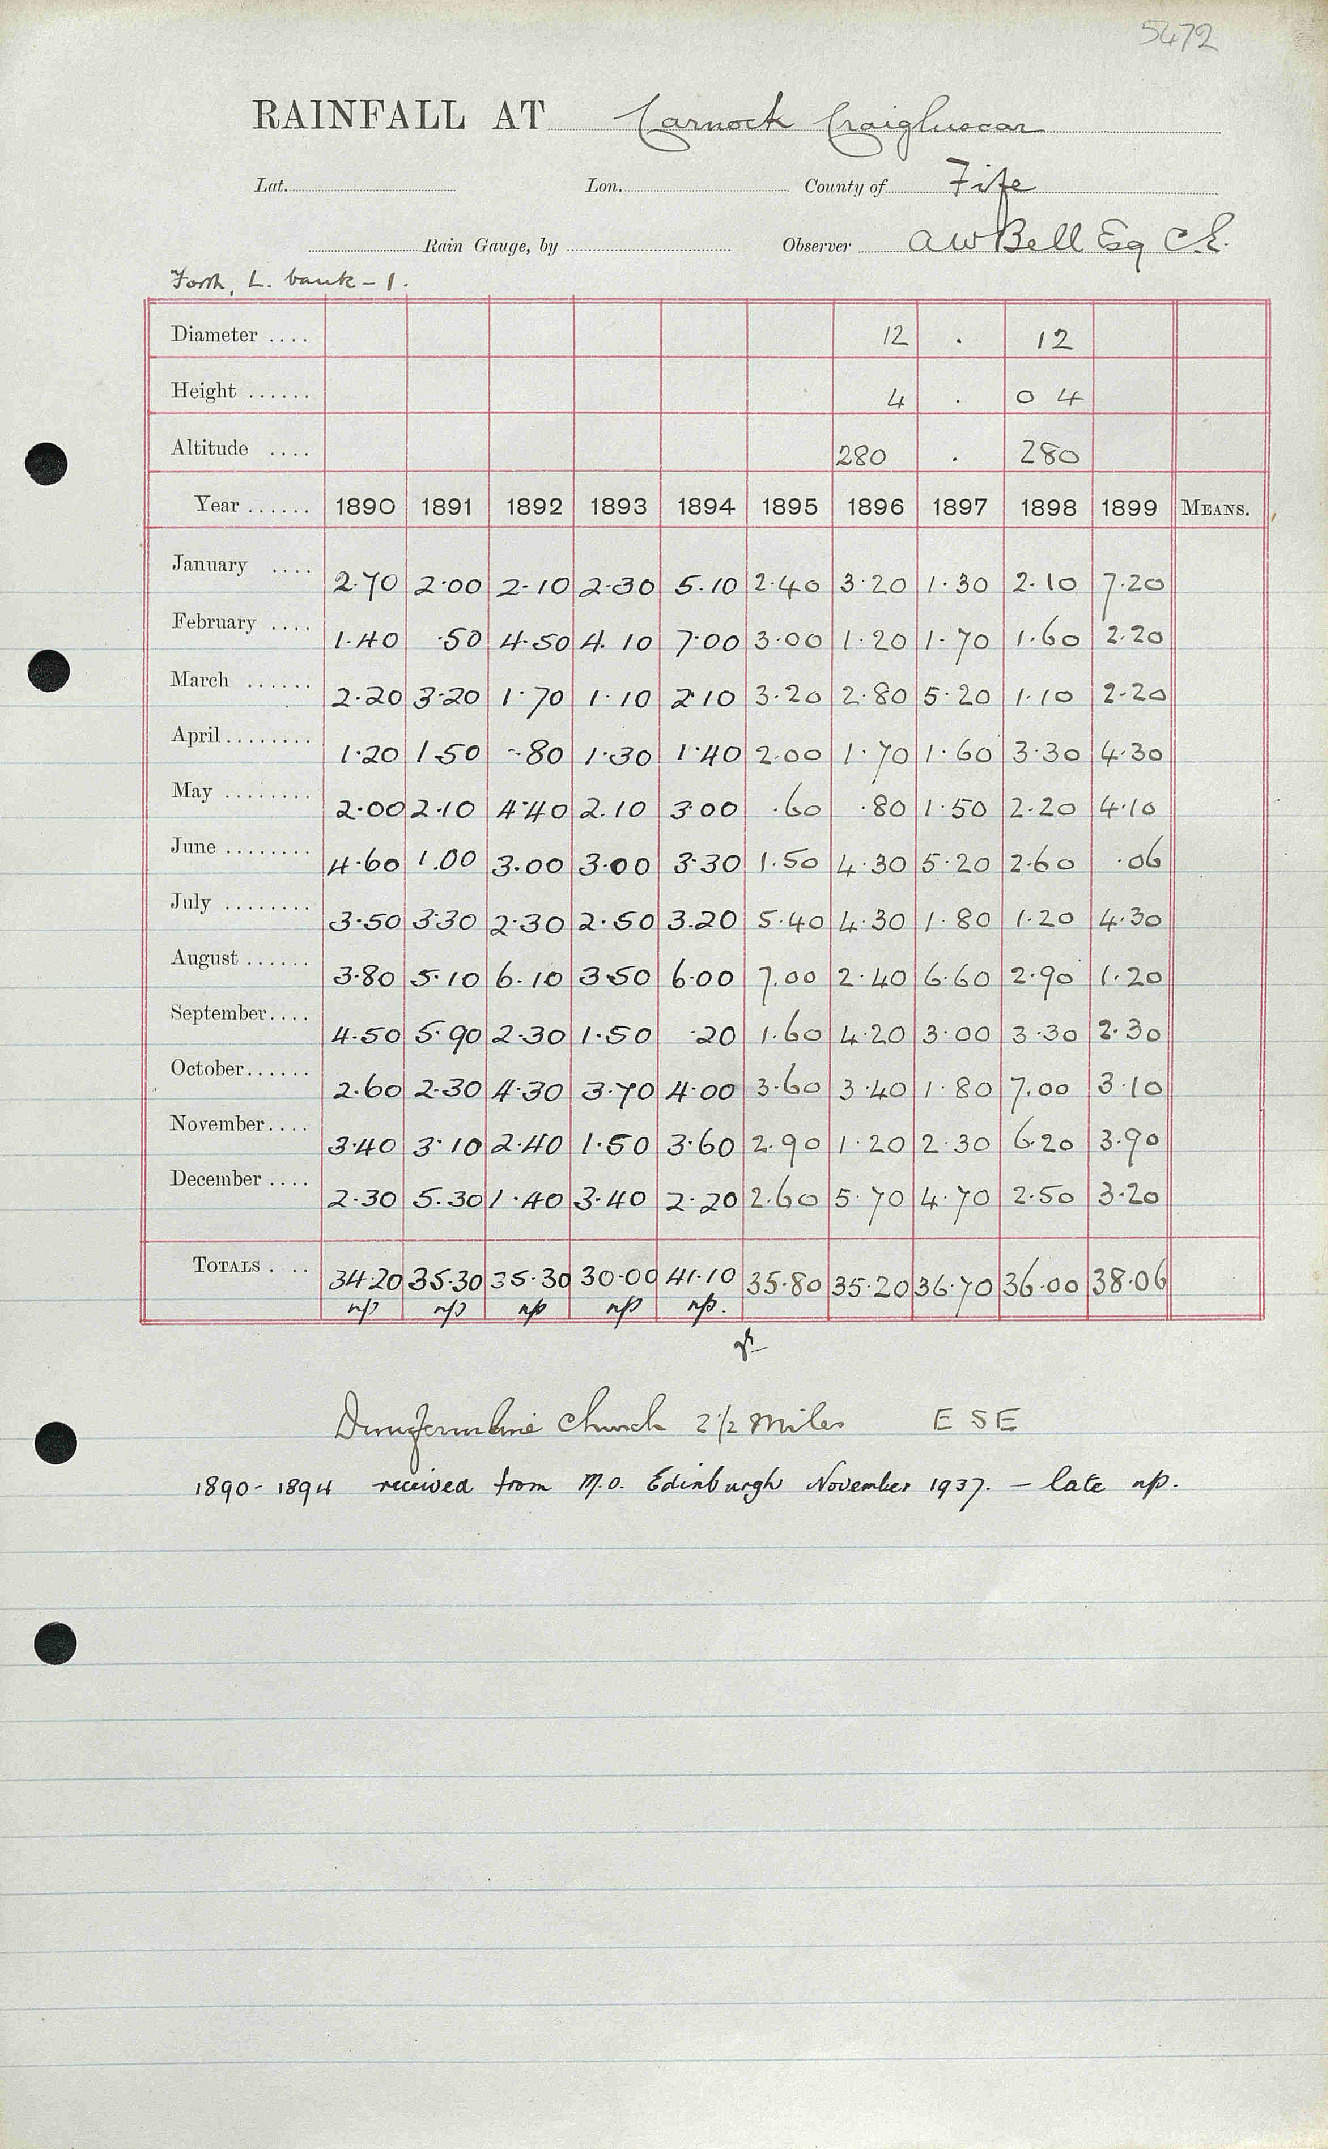 5472
RAINFALL AT Carnock Craigluscar
Lat. Lon. County of Fife
Rain Gauge, by Observer A W Bell Esq C.E.
Forth, L. bank - 1.
Diameter .... 12 . 12
Height ...... 4 . 0 4
Altitude .... 280 . 280
Year ...... 1890 1891 1892 1893 1894 1895 1896 1897 1898 1899 MEANS.
January .... 2.70 2.00 2.10 2.30 5.10 2.40 3.20 1.30 2.10 7.20
February .... 1.40 .50 4.50 4.10 7.00 3.00 1.20 1.70 1.60 2.20
March ...... 2.20 3.20 1.70 1.10 2.10 3.20 2.80 5.20 1.10 2.20
April ........ 1.20 1.50 .80 1.30 1.40 2.00 1.70 1.60 3.30 4.30
May ........ 2.00 2.10 4.40 2.10 3.00 .60 .80 1.50 2.20 4.10
June ........ 4.60 1.00 3.00 3.00 3.30 1.50 4.30 5.20 2.60 .06
July ........ 3.50 3.30 2.30 2.50 3.20 5.40 4.30 1.80 1.20 4.30
August ...... 3.80 5.10 6.10 3.50 6.00 7.00 2.40 6.60 2.90 1.20
September .... 4.50 5.90 2.30 1.50 .20 1.60 4.20 3.00 3.30 2.30
October ...... 2.60 2.30 4.30 3.70 4.00 3.60 3.40 1.80 7.00 3.10
November .... 3.40 3.10 2.40 1.50 3.60 2.90 1.20 2.30 6.20 3.90
December .... 2.30 5.30 1.40 3.40 2.20 2.60 5.70 4.70 2.50 3.20
TOTALS .... 34.20 35.30 35.30 30.00 41.10 35.80 35.20 36.70 36.00 38.06
np np np np np.
Dunfermline Church 2 1/2 Miles E S E
1890 - 1894 received from M.O. Edinburgh November 1937. - late np.